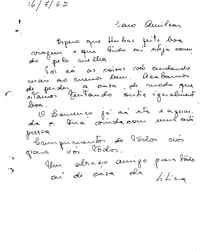 16/7/62
Caro Amilcar
Espero que tenhas feito boa
viagem e que tudo aí seja como
do pelo melhor
Por cá as coisas vão andando
mais ou menos bem. Acabamos
de perder a casa, de modo que
estamos tentando outra igualmente
boa.
O Lourenço já aí está e aguar-
da a tua
pressa
Cumprimentos de todos nós
para vós todos.
Um abraço amigo para todos
aí de casa da